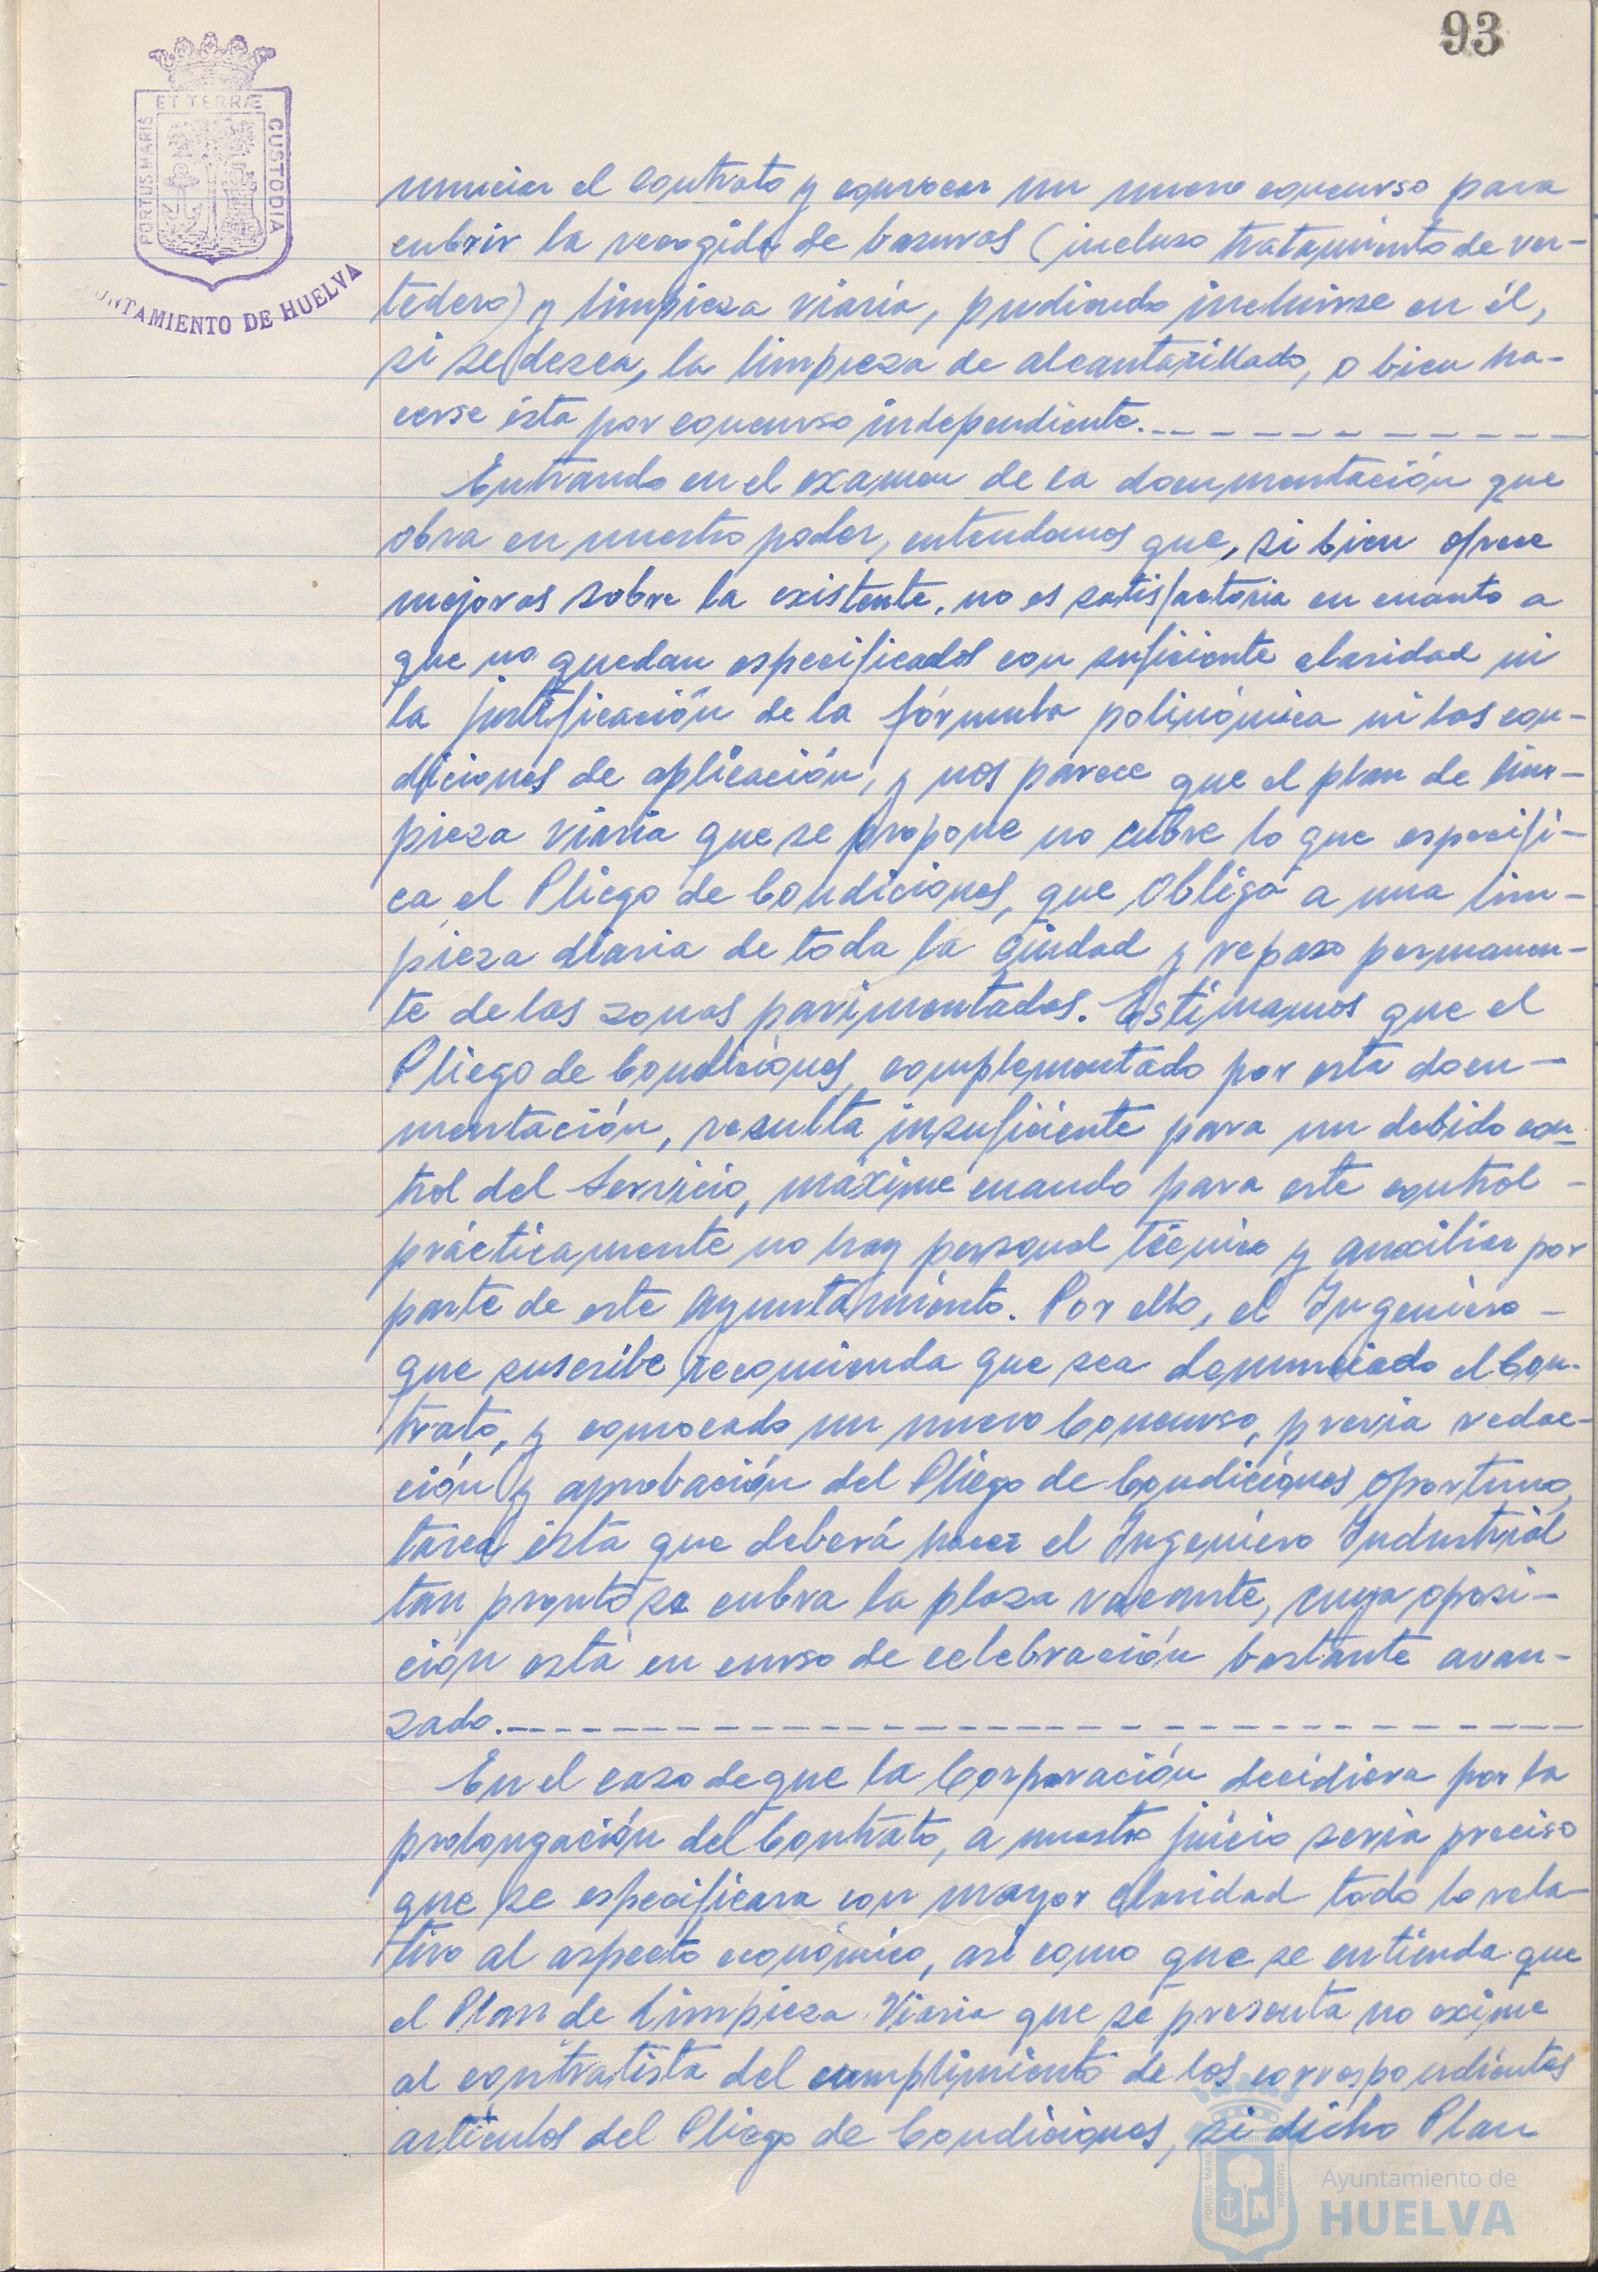 93
ET TERRÆ
PORTUS MARIS
CUSTODIA
UNTAMIENTO DE HUELVA
nunciar el contrato y convocar un nuevo concurso para
cubrir la recogida de basuras (incluso tratamiento de ver-
tedero) y limpieza viaria, pudiendo incluirse en él,
si se desea, la limpieza de alcantarillado, o bien ha-
cerse ésta por concurso independiente.
Entrando en el examen de la documentación que
obra en nuestro poder, entendemos que, si bien ofrece
mejoras sobre la existente, no es satisfactoria en cuanto a
que no quedan especificados con suficiente claridad ni
la justificación de la fórmula polinómica ni las con-
diciones de aplicación, y nos parece que el plan de lim-
pieza viaria que se propone no cubre lo que especifi-
ca el Pliego de Condiciones, que obliga a una lim-
pieza diaria de toda la Ciudad y repaso permanen-
te de las zonas pavimentadas. Estimamos que el
Pliego de Condiciones, complementado por esta docu-
mentación, resulta insuficiente para un debido con-
trol del Servicio, máxime cuando para este control -
prácticamente no hay personal técnico y auxiliar por
parte de este Ayuntamiento. Por ello, el Ingeniero -
que suscribe recomienda que sea denunciado el Con-
trato, y convocado un nuevo Concurso, previa redac-
ción y aprobación del Pliego de Condiciones oportuno,
tarea ésta que deberá hacer el Ingeniero Industrial
tan pronto se cubra la plaza vacante, cuya oposi-
ción está en curso de celebración bastante avan-
zado.
En el caso de que la Corporación decidiera por la
prolongación del Contrato, a nuestro juicio sería preciso
que se especificara con mayor claridad todo lo rela-
tivo al aspecto económico, así como que se entienda que
el Plan de Limpieza Viaria que se presenta no exime
al contratista del cumplimiento de los correspondientes
artículos del Pliego de Condiciones, si dicho Plan
PORTUS MARIS
CUSTODIA
Ayuntamiento de
HUELVA